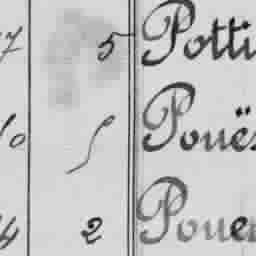 7 5 Potti
10 Pouës
4 2 Pouer